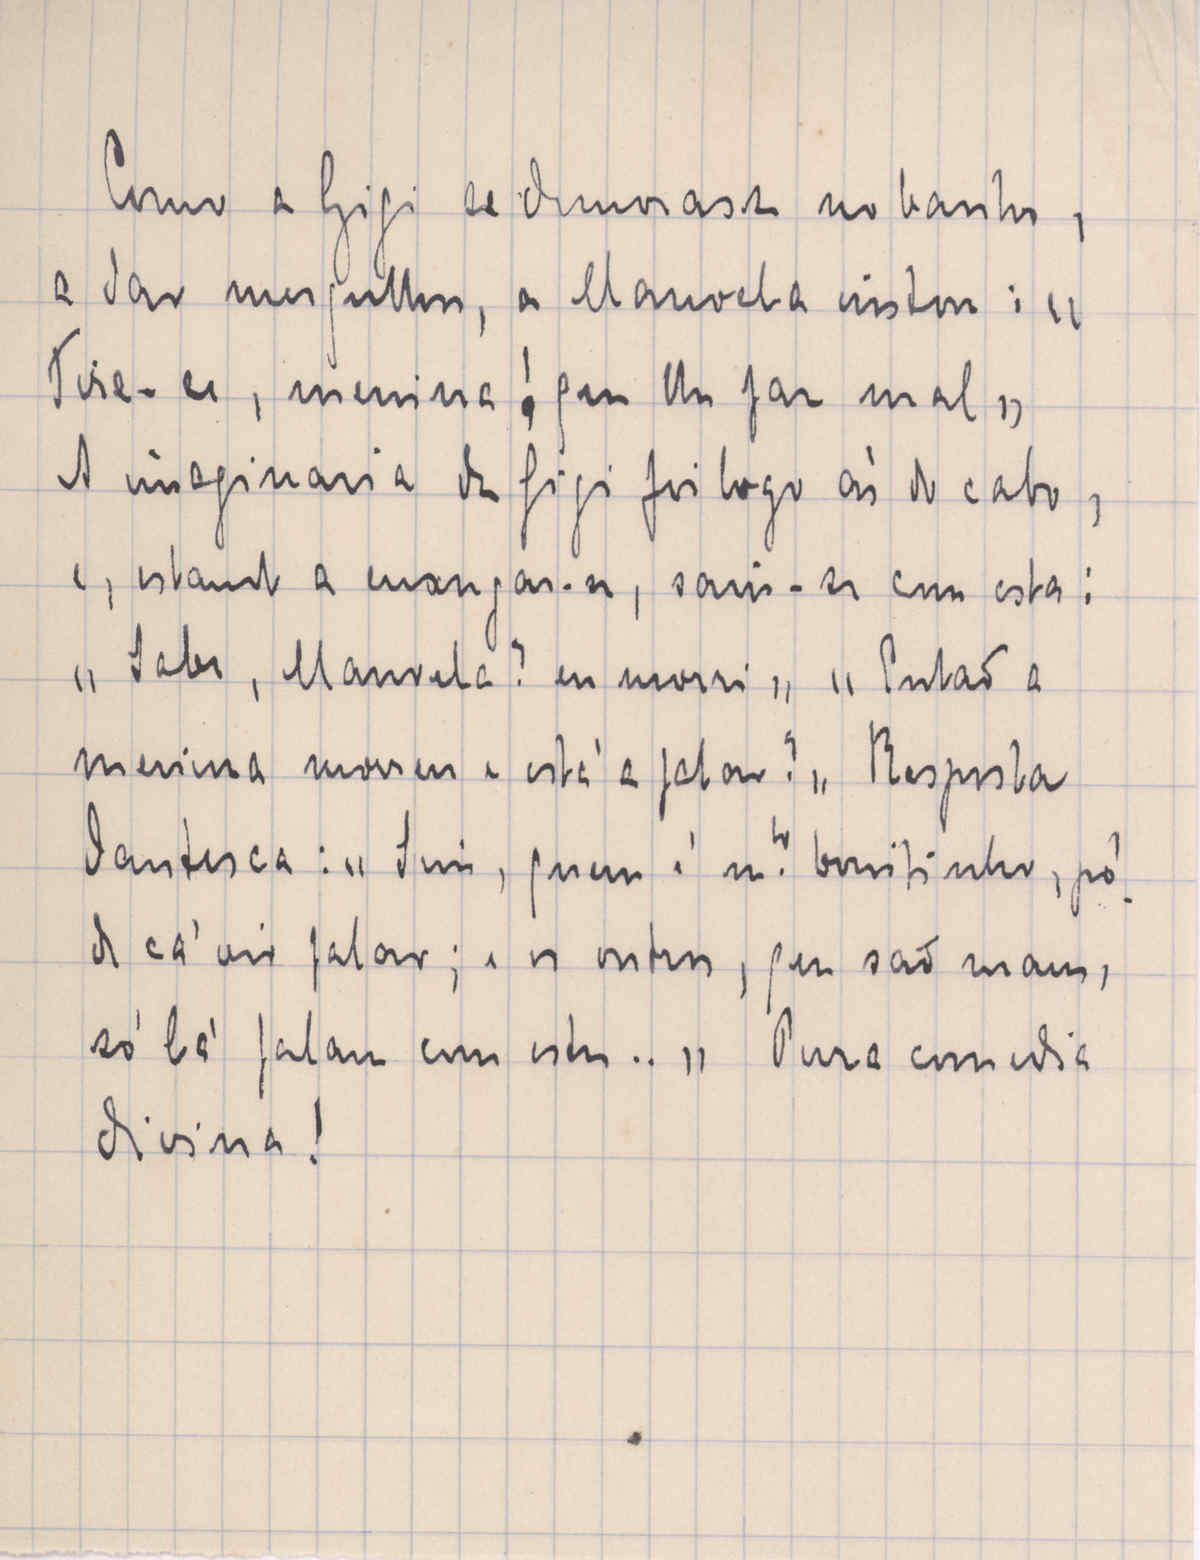 Como a Gigi se demorasse no banho,
a dar mergulhos, a Manoela insistiu: "
Tire-se, menina! que lhe faz mal"
A imaginaria da Gigi foi logo ás do cabo,
e, estando a enxugar-se, saiu-se com esta:
"Sabe, Manoela? eu morri" "Entaõ a
menina morreu e está a falar?" Resposta
dantesca: "Sim, quem é mto bonitinho, pó-
de cá vir falar; e os outros, que saõ maus,
só lá falam com estes.." Pura comedia
divina!